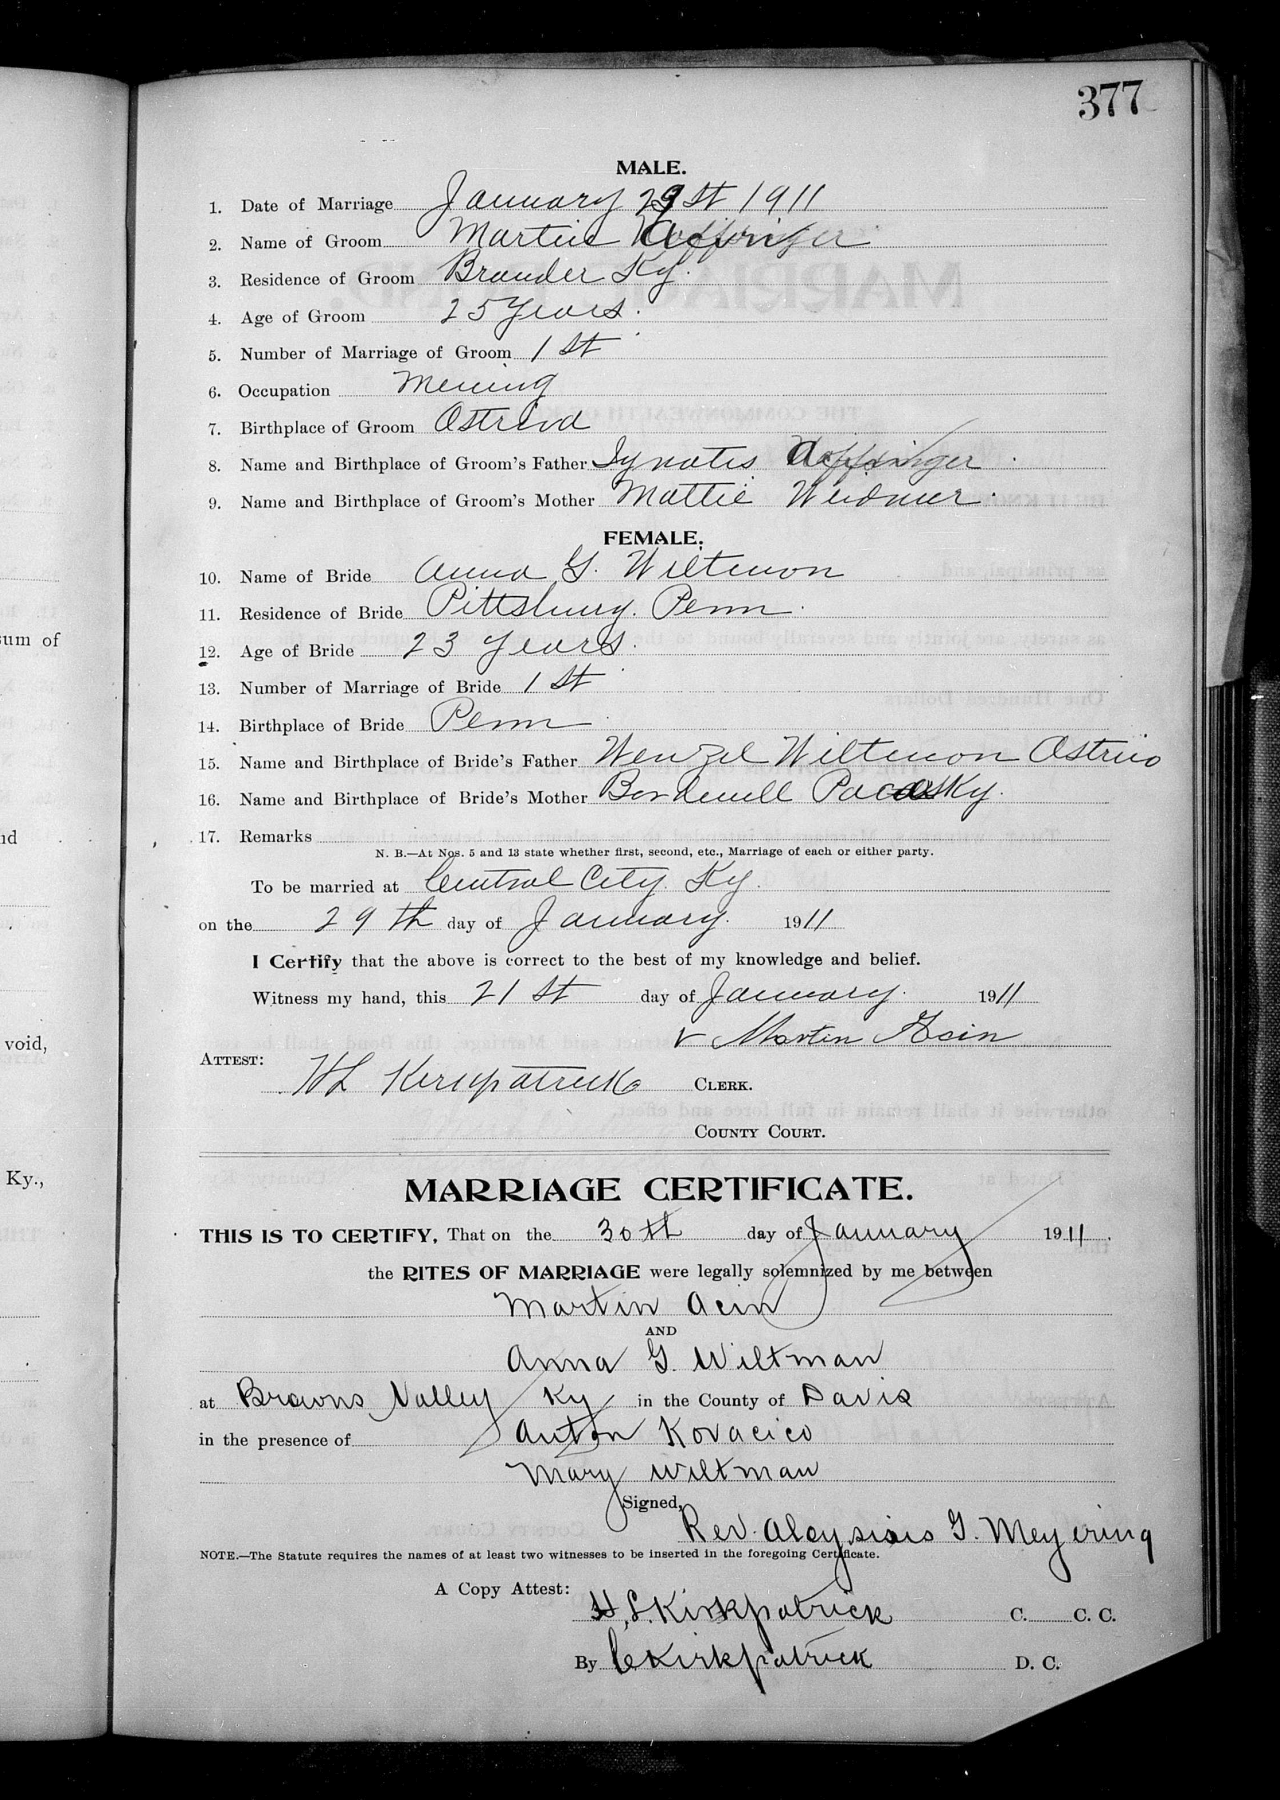 377
MALE.
1. Date of Marriage January 29st 1911
2. Name of Groom Martin
3. Residence of Groom Browder Ky.
4. Age of Groom 25 Years.
5. Number of Marriage of Groom 1 St
6. Occupation Mening
7. Birthplace of Groom Ostriva
8. Name and Birthplace of Groom's Father Ignatis
9. Name and Birthplace of Groom's Mother Mattie Weidmer.
FEMALE.
10. Name of Bride Anna G. Wiltmon
11. Residence of Bride Pittsburg. Penn.
12. Age of Bride 23 Years.
13. Number of Marriage of Bride 1 St
14. Birthplace of Bride Penn
15. Name and Birthplace of Bride's Father Wenzel Wiltmon Ostrio
16. Name and Birthplace of Bride's Mother
17. Remarks
N. B.—At Nos. 5 and 13 state whether first, second, etc., Marriage of each or either party.
To be married at Central City. Ky.
on the 29th day of January. 1911
I Certify that the above is correct to the best of my knowledge and belief.
Witness my hand, this 21 St day of January. 1911
Martin
ATTEST:
HL Kirkpatrick CLERK.
COUNTY COURT.
MARRIAGE CERTIFICATE.
THIS IS TO CERTIFY, That on the 30th day of January 1911.
the RITES OF MARRIAGE were legally solemnized by me between
Martin Acin
AND
Anna G. Wiltman
at Browns Valley Ky in the County of Davis
in the presence of Anton Kovacico
Mary Wiltman
Signed,
Rev. Aloysiais G. Meyering
NOTE.—The Statute requires the names of at least two witnesses to be inserted in the foregoing Certificate.
A Copy Attest:
H, L. Kirkpatrick C. C. C.
By C Kirkpatrick D. C.
sum of
nd
void,
Ky.,